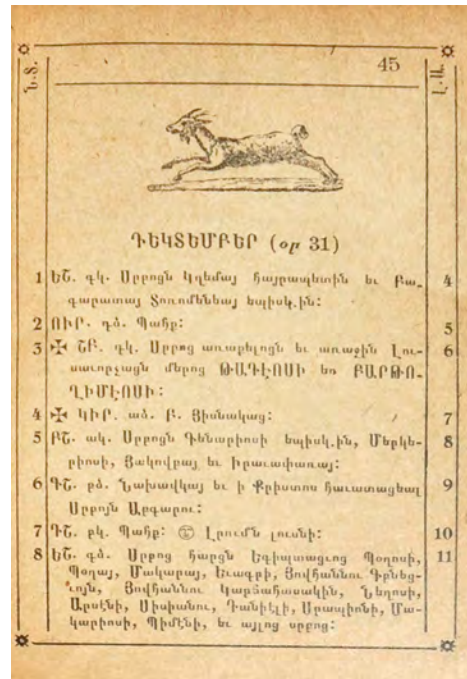 45
Ն.Տ.
Լ.Ա.
ԴԵԿՏԵՄԲԵՐ (օր 31)
1 ԵՇ. գկ. Սրբոցն Կղեմայ հայրապետին եւ Բա- 4
գարատայ Տուոմենեայ եպիսկ.ին:
2 ՈՒՐ. դձ. Պահք: 5
3 ✠ ՇԲ. գկ. Սրբոց առաքելոցն եւ առաջին Լու- 6
սաւորչացն մերոց ԹԱԴԷՈՍԻ եւ ԲԱՐԹՈ-
ՂԻՄԷՈՍԻ:
4 ✠ ԿԻՐ. աձ. Բ. Յիսնակաց: 7
5 ԲՇ. ակ. Սրբոցն Գենարիոսի եպիսկ.ին, Մերկե- 8
րիոսի, Յակովբայ եւ հրաւափառայ:
6 ԳՇ. բձ. Նախավկայ եւ ի Քրիստոս հաւատացեալ 9
Սրբոյն Աբգարու:
7 ԴՇ. բկ. Պահք: Լրումն լուսնի: 10
8 ԵՇ. գձ. Սրբոց հարցն Եգիպտացւոց Պօղոսի, 11
Պօղայ, Մակարայ, Եւագրի, Յովհաննու Գբնեց-
ւոյն, Յովհաննու Կարճահասակին, Նեղոսի,
Արսէնի, Սիսիանու, Դանիէլի, Սրապիոնի, Մա-
կարիոսի, Պիմէնի, եւ այլոց սրբոց: